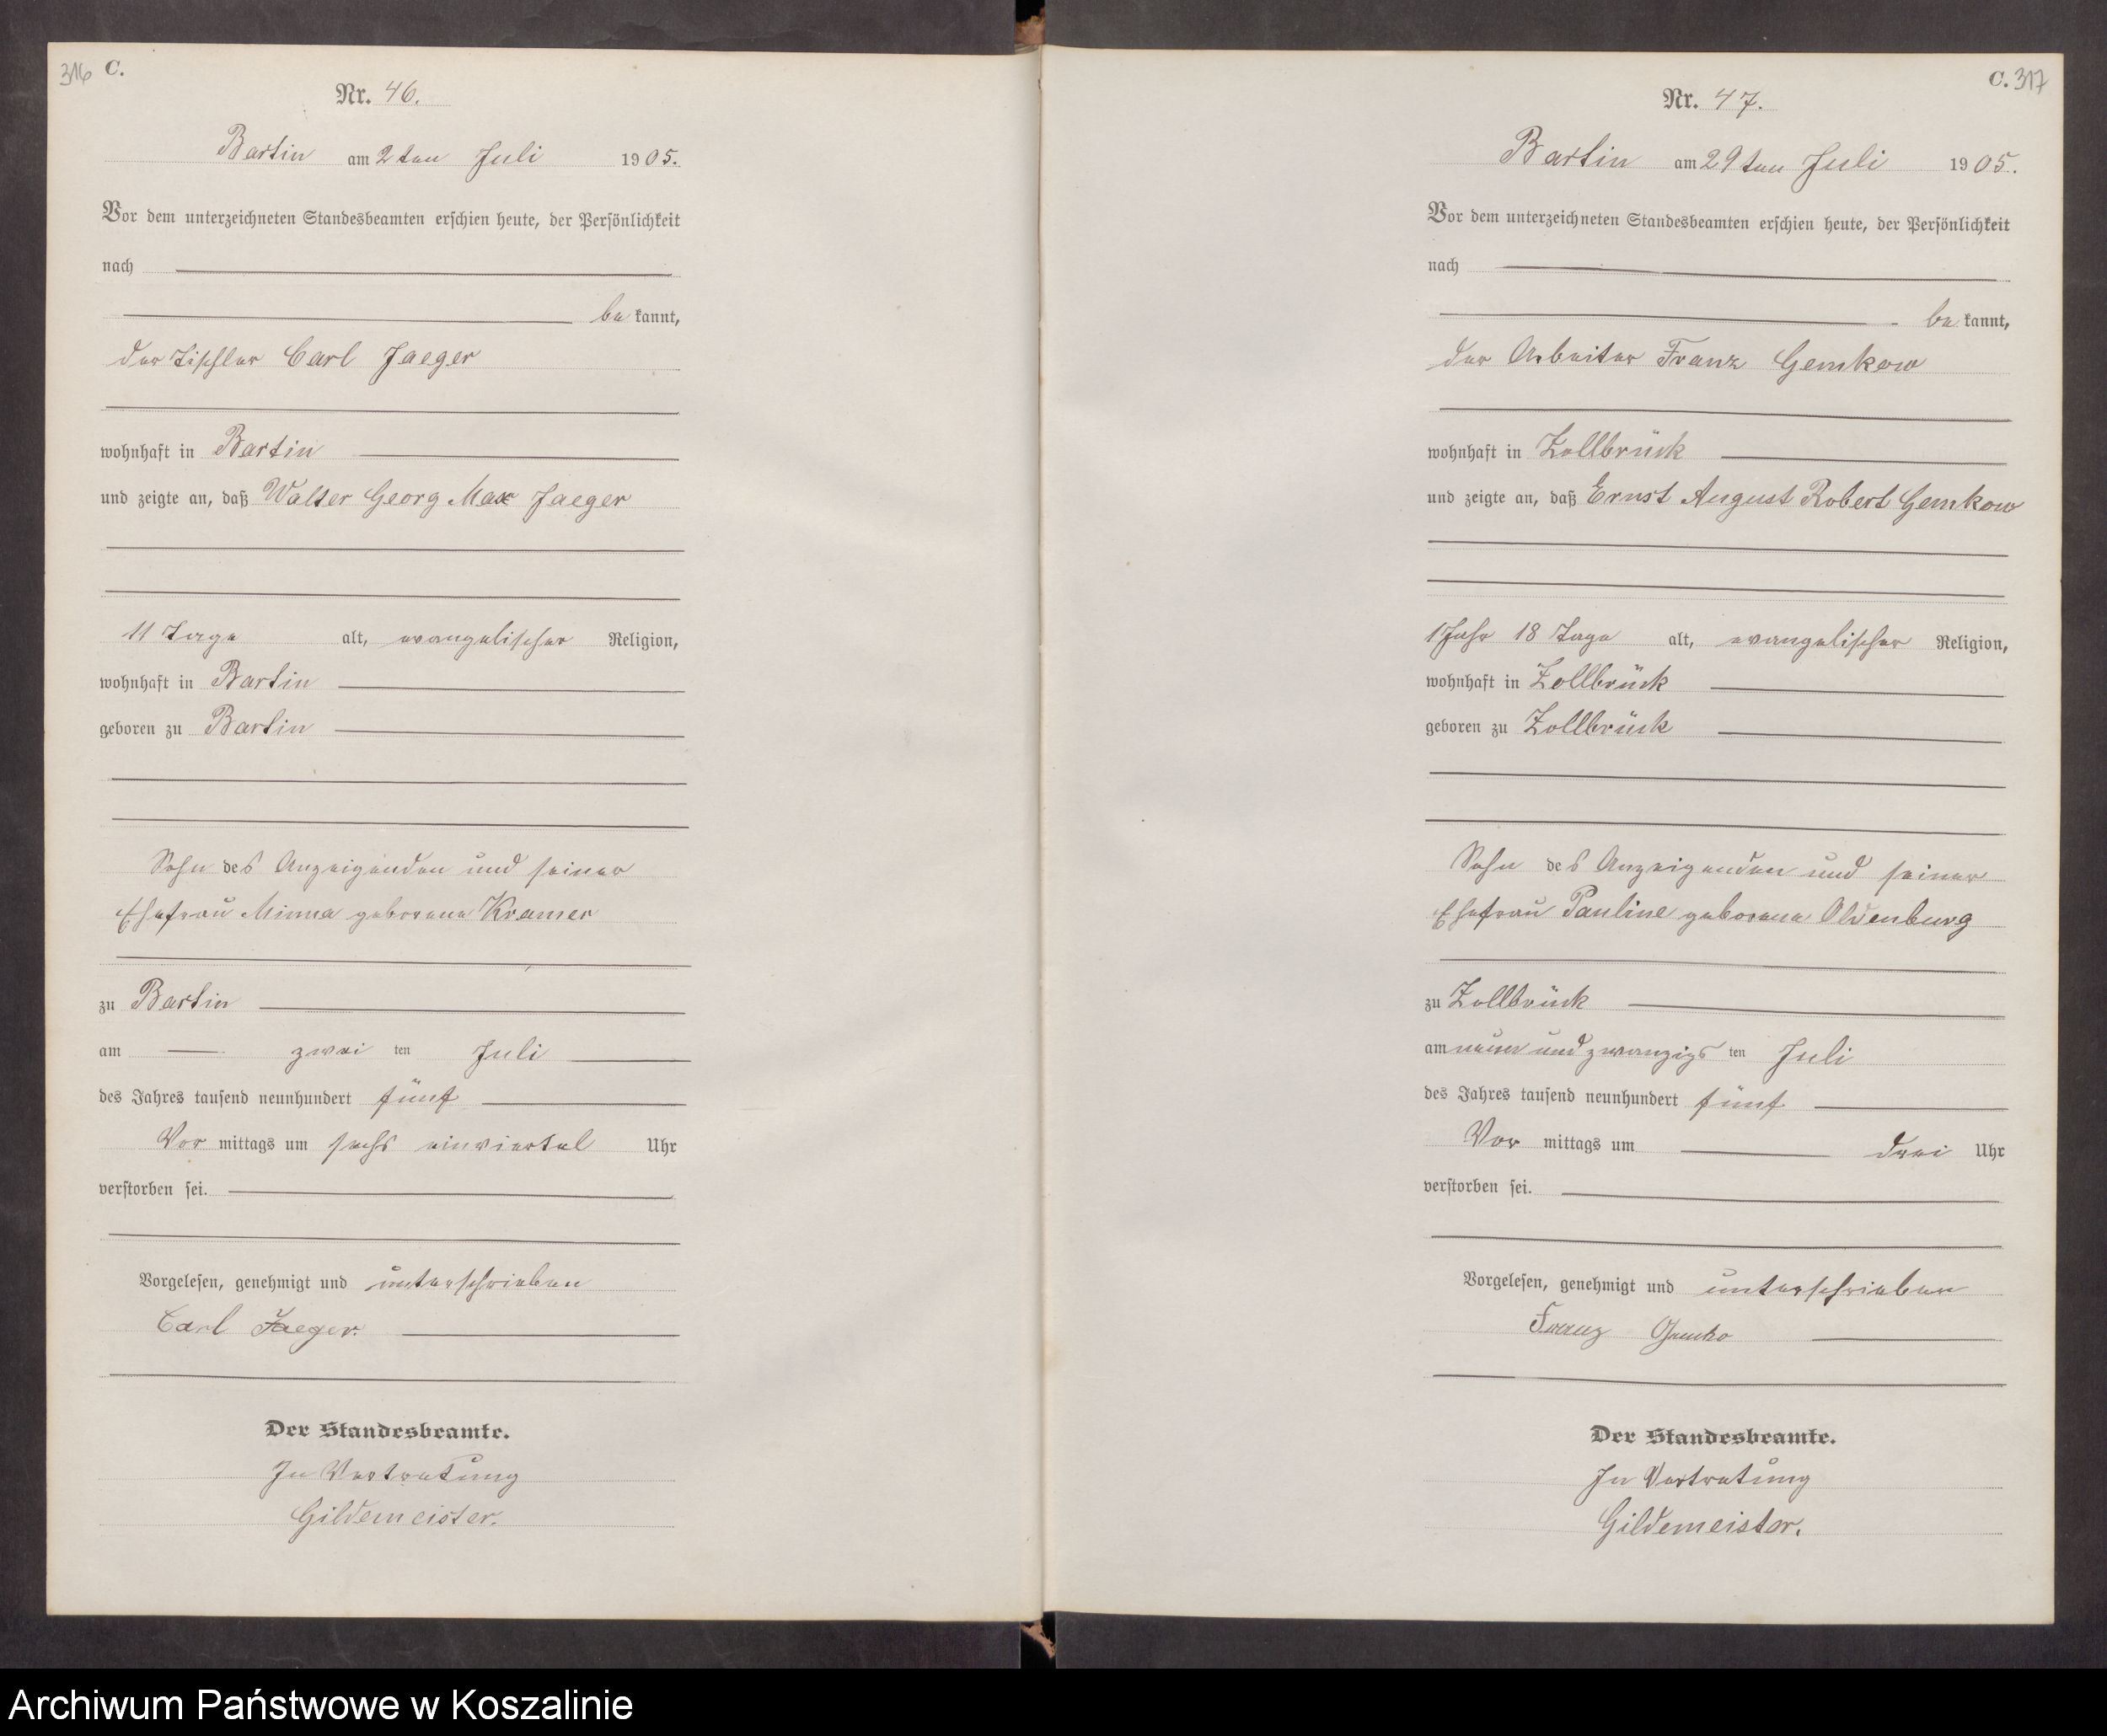 316 C.
Nr. 46.
Bartin am 2ten Juli 1905.
Vor dem unterzeichneten Standesbeamten erschien heute, der Persönlichkeit
nach
be kannt,
der Tischler Carl Jaeger
wohnhaft in Bartin
und zeigte an, daß Walter Georg Max Jaeger
11 Tage alt, evangelischer Religion,
wohnhaft in Bartin
geboren zu Bartin
Sohn des Anzeigenden und seiner
Ehefrau Minna geborene Kramer
zu Bartin
am zwei ten Juli
des Jahres tausend neunhundert fünf
Vor mittags um sechs einviertel Uhr
verstorben sei.
Vorgelesen, genehmigt und unterschrieben
Carl Jaeger.
Der Standesbeamte.
In Vertretung
Gildemeister.
C. 317
Nr. 47.
Bartin am 29ten Juli 1905.
Vor dem unterzeichneten Standesbeamten erschien heute, der Persönlichkeit
nach
be kannt,
der Arbeiter Franz Gemkow
wohnhaft in Zollbrück
und zeigte an, daß Ernst August Robert Gemkow
1 Jahr 18 Tage alt, evangelischer Religion,
wohnhaft in Zollbrück
geboren zu Zollbrück
Sohn des Anzeigenden und seiner
Ehefrau Pauline geborene Oldenburg
zu Zollbrück
am neun und zwanzigs ten Juli
des Jahres tausend neunhundert fünf
Vor mittags um drei Uhr
verstorben sei.
Vorgelesen, genehmigt und unterschrieben
Franz Gemko
Der Standesbeamte.
In Vertretung
Gildemeister.
Archiwum Państwowe w Koszalinie